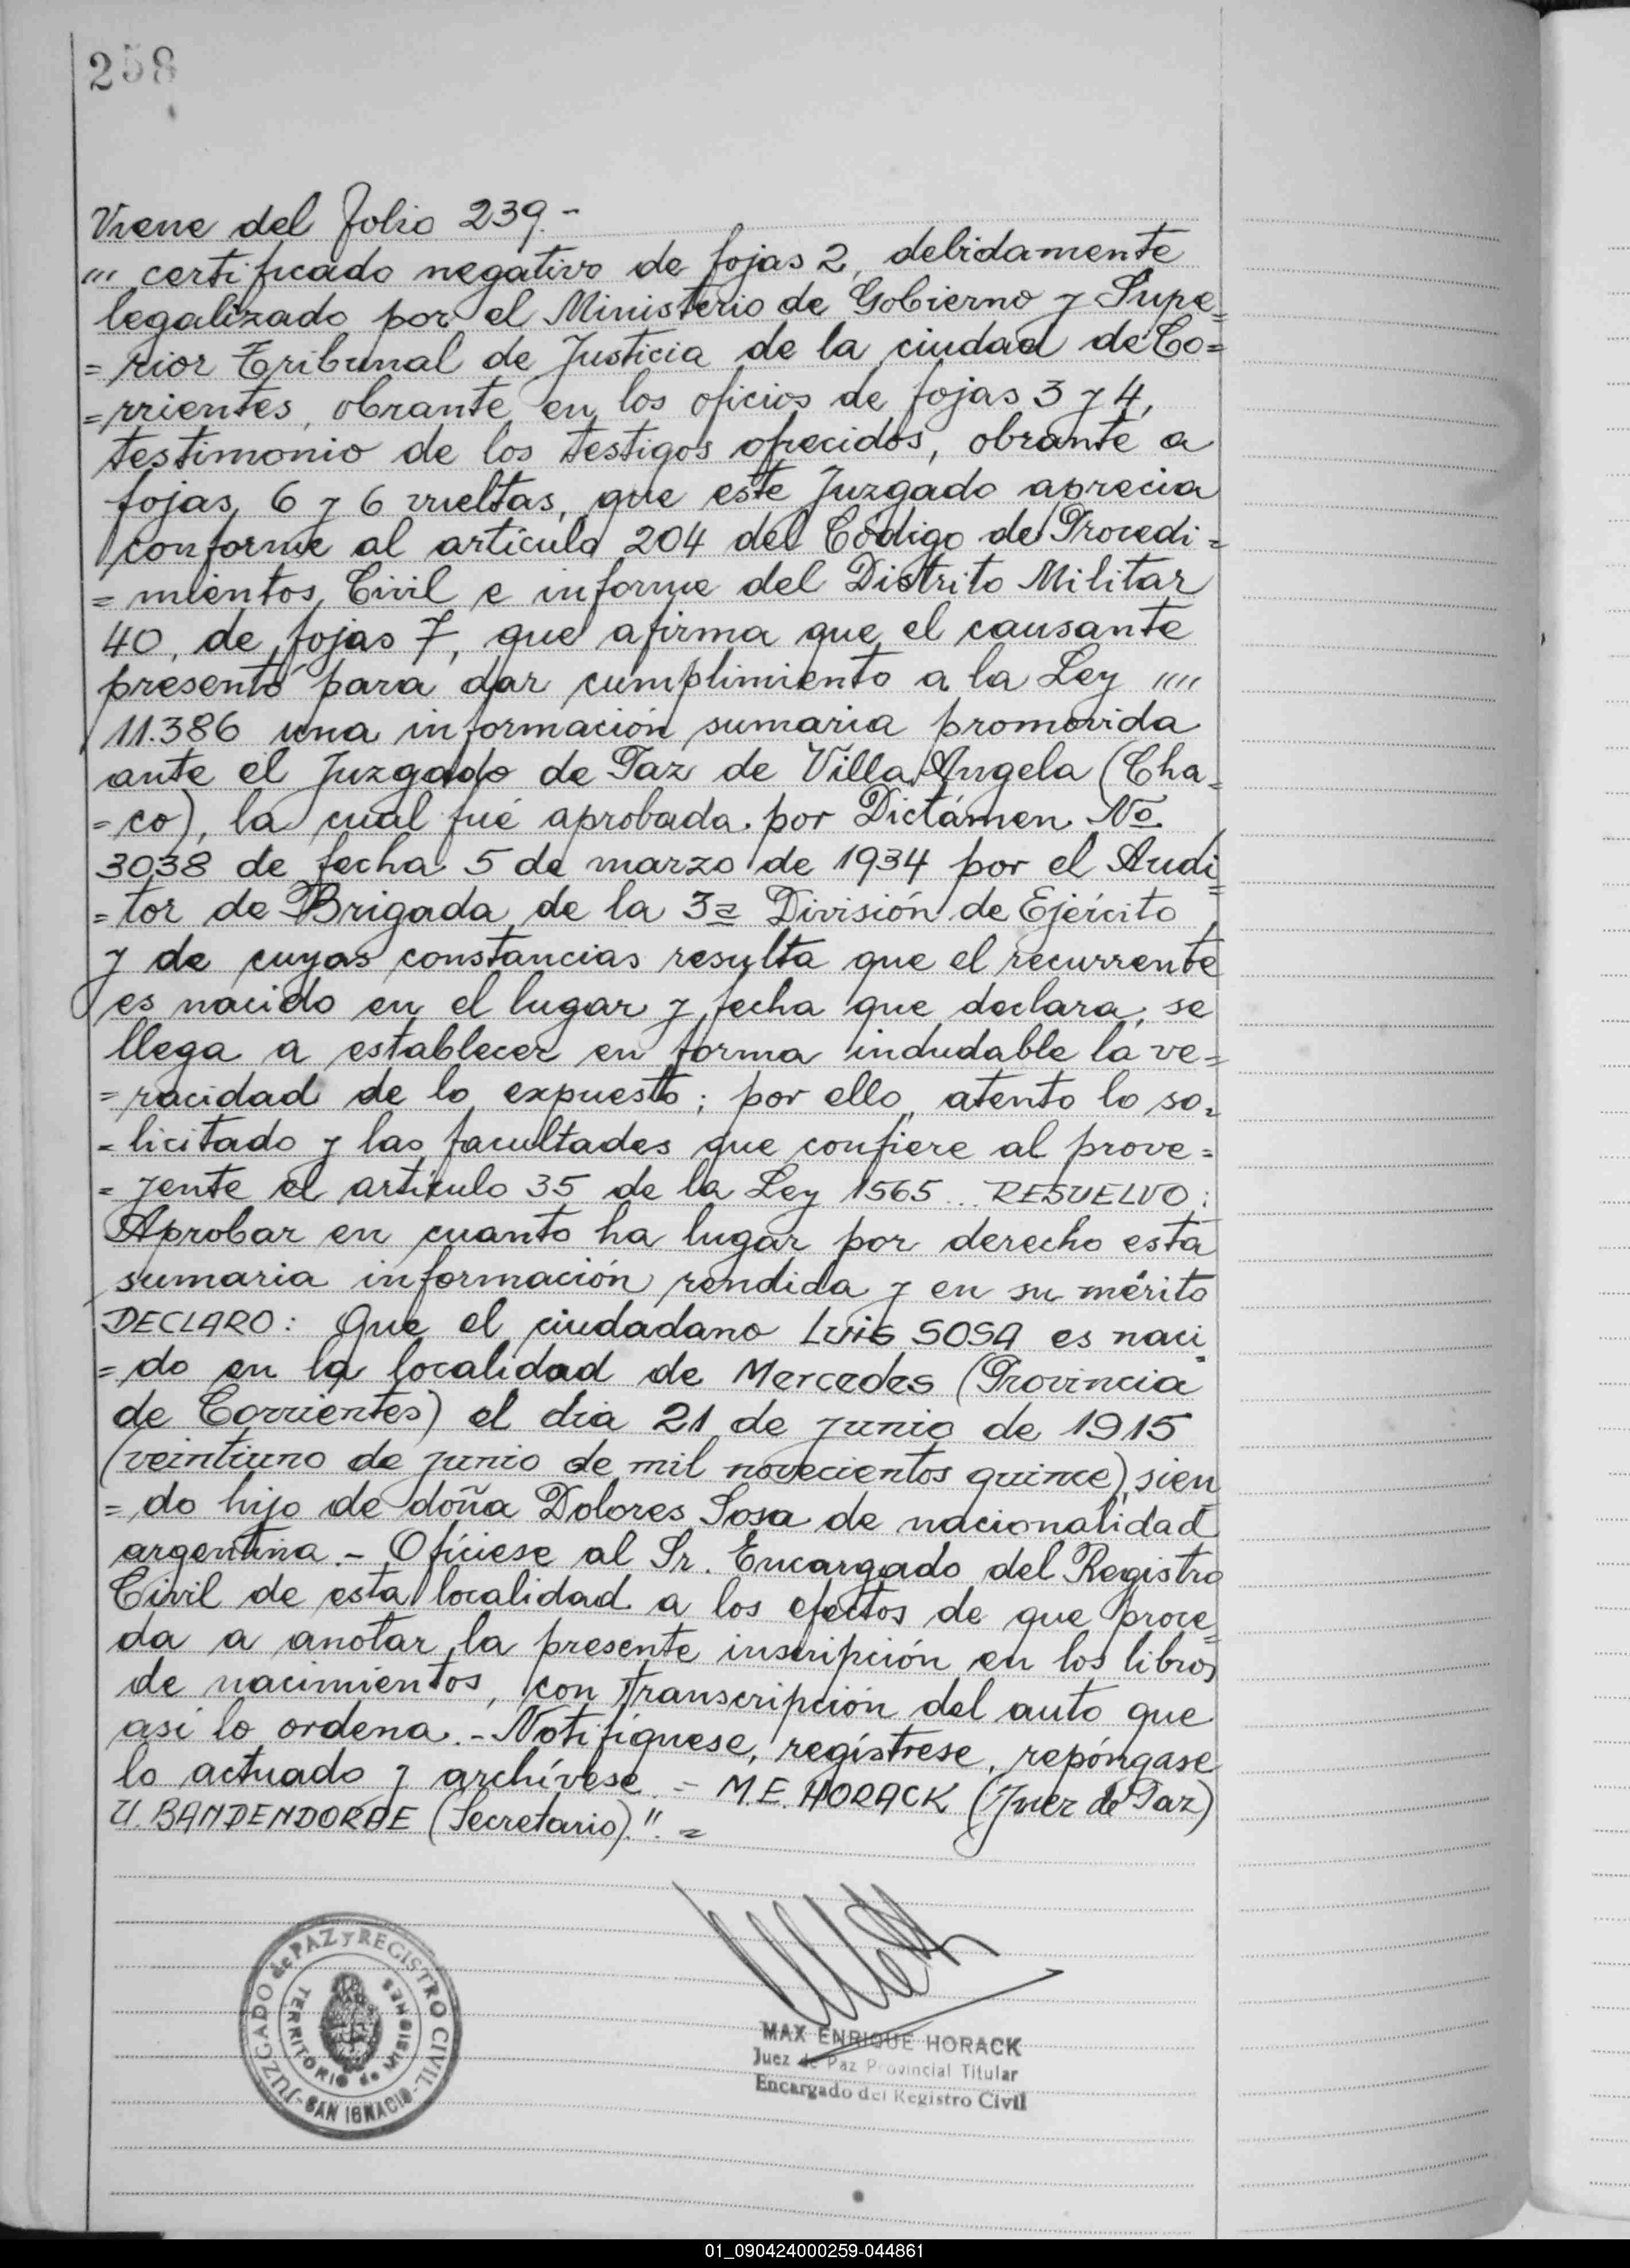 258
Viene del Folio 239.-
''' certificado negativo de fojas 2, debidamente
legalizado por el Ministerio de Gobierno y Supe=
=rior Tribunal de Justicia de la ciudad de Co=
=rrientes, obrante en los oficios de fojas 3 y 4,
testimonio de los testigos ofrecidos, obrante a
fojas 6 y 6 vueltas, que este Juzgado aprecia
conforme al artículo 204 del Código de Procedi=
=mientos Civil e informe del Distrito Militar
40, de fojas 7, que afirma que el causante
presentó para dar cumplimiento a la Ley ''''
11.386 una información sumaria promovida
ante el Juzgado de Paz de Villa Angela (Cha=
=co), la cual fué aprobada por Dictámen No
3038 de fecha 5 de marzo de 1934 por el Audi=
=tor de Brigada de la 3a División de Ejército
y de cuyas constancias resulta que el recurrente
es nacido en el lugar y fecha que declara, se
llega a establecer en forma indudable la ve=
=racidad de lo expuesto; por ello, atento lo so=
=licitado y las facultades que confiere al prove=
=yente el artículo 35 de la Ley 1565.. RESUELVO:
Aprobar en cuanto ha lugar por derecho esta
sumaria información rendida y en su mérito
DECLARO: Que el ciudadano LUIS SOSA es naci=
=do en la localidad de Mercedes (Provincia
de Corrientes) el dia 21 de junio de 1915
(veintiuno de junio de mil novecientos quince), sien
=do hijo de doña Dolores Sosa de nacionalidad
argentina.- Ofíciese al Sr. Encargado del Registro
Civil de esta localidad a los efectos de que proce=
da a anotar la presente inscripción en los libros
de nacimientos, con transcripción del auto que
así lo ordena.- Notifíquese, regístrese, repóngase
lo actuado y archívese.= M.E. HORACK (Juez de Paz)
U. BANDENDORAE (Secretario)". =
JUZGADO de PAZ y REGISTRO CIVIL
TERRITORIO de MISIONES
-SAN IGNACIO-
MAX ENRIQUE HORACK
Juez de Paz Provincial Titular
Encargado del Registro Civil
01_090424000259-044861